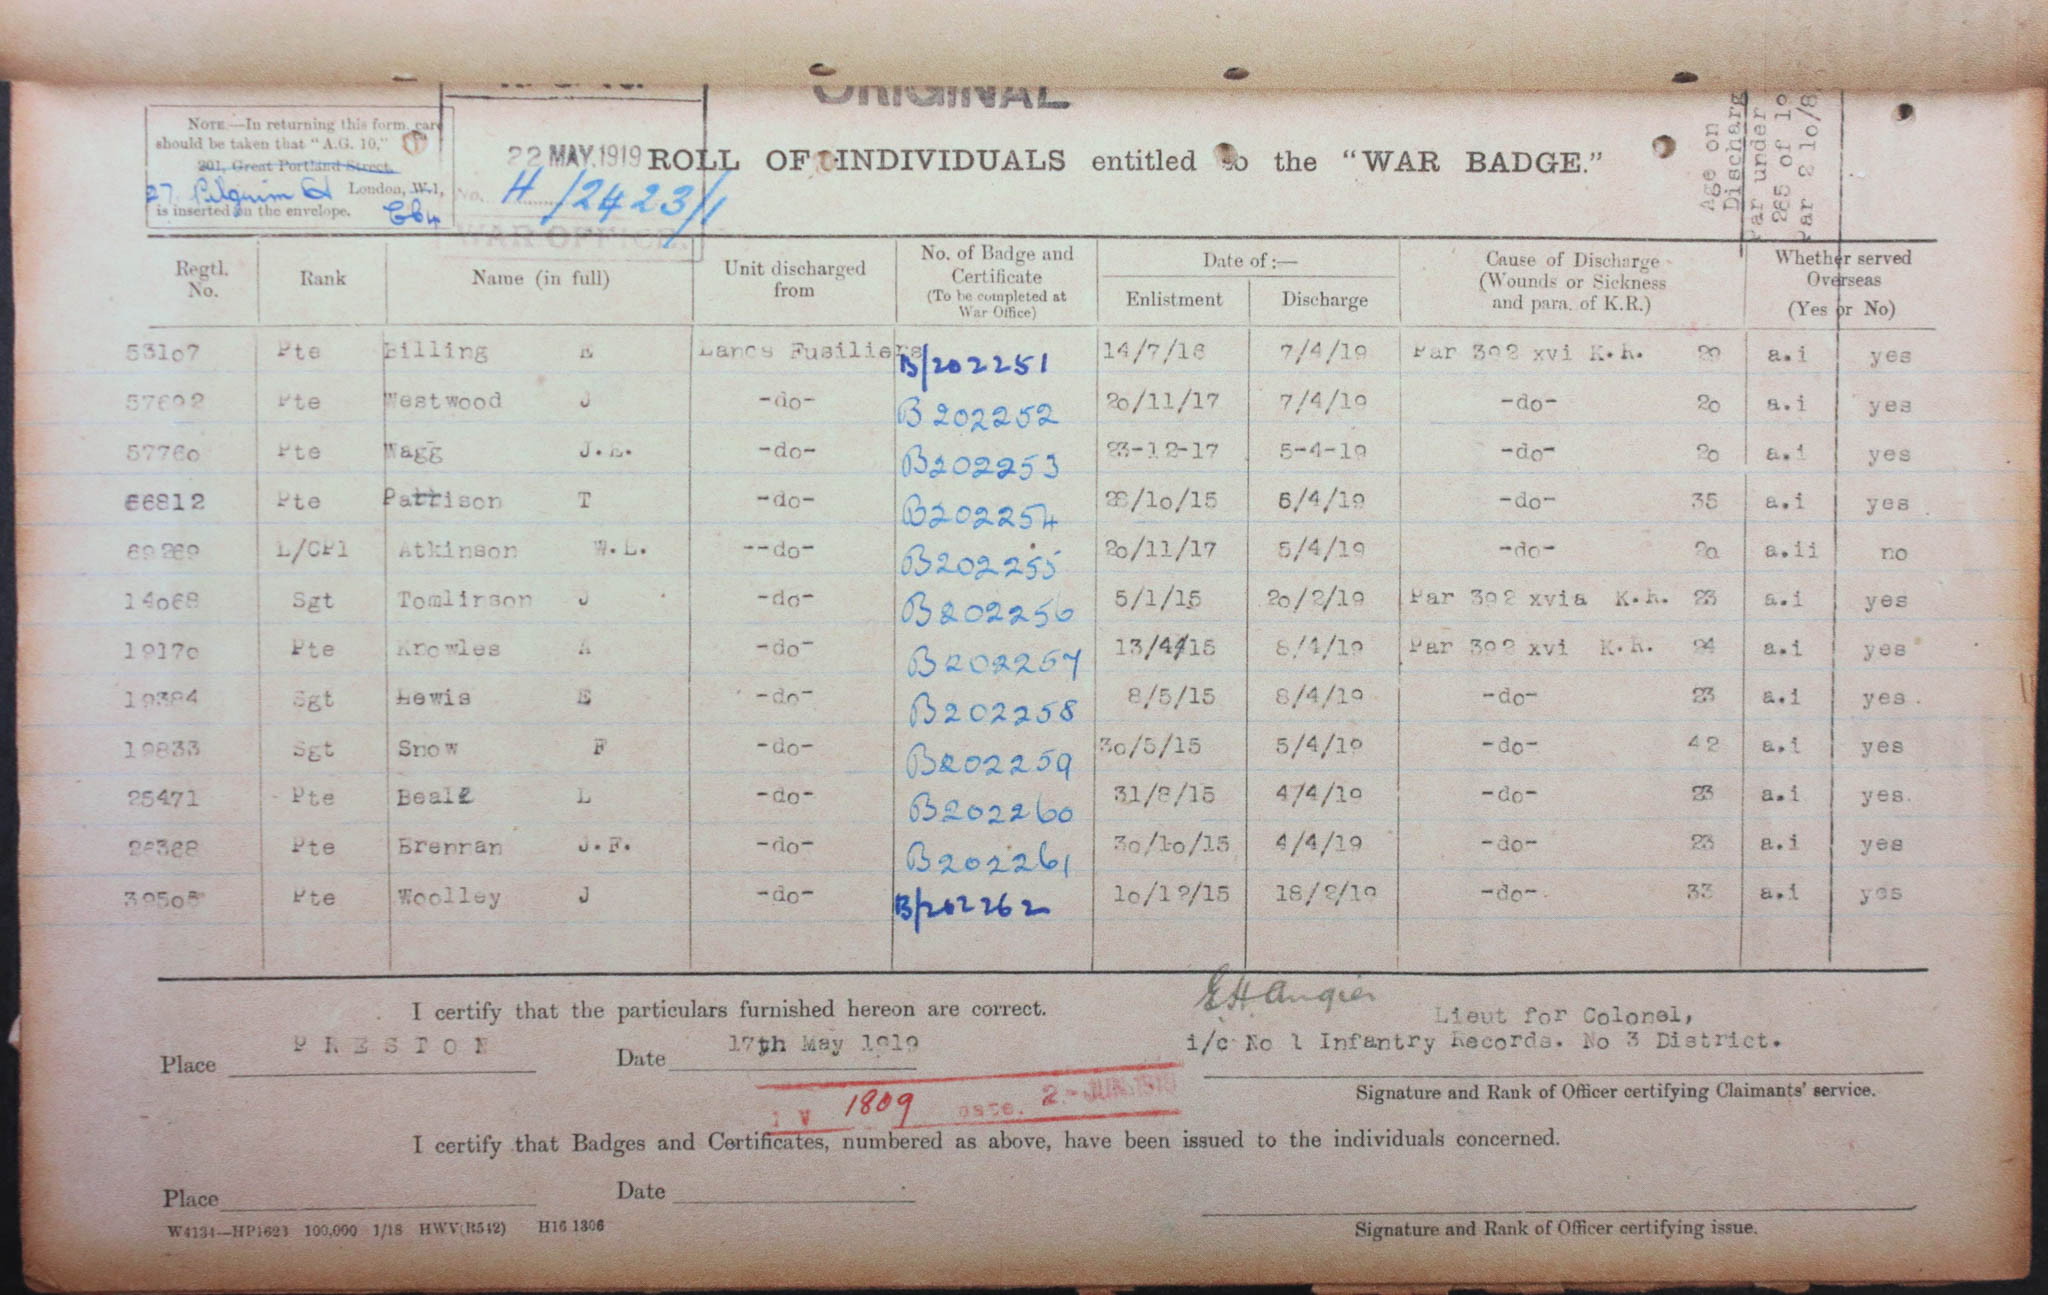 ORIGINAL
NOTE.—In returning this form, care
should be taken that "A.G. 10,"
201, Great Portland Street,
27 Pilgrim St London, W.1,
is inserted on the envelope. EC4
22 MAY. 1919
No. H/2423/1
WAR OFFICE.
ROLL OF INDIVIDUALS entitled to the "WAR BADGE."
Age on
Discharg
Par under
265 of 19
Par 2 10/8
Regtl. No. Rank Name (in full) Unit discharged from No. of Badge and Certificate (To be completed at War Office) Date of :— Enlistment Discharge Cause of Discharge (Wounds or Sickness and para. of K.R.) Whether served Overseas (Yes or No)
53107 Pte Billing E Lancs Fusiliers B/202251 14/7/16 7/4/19 Par 392 xvi K.R. 29 a.i yes
57692 Pte Westwood J -do- B202252 20/11/17 7/4/19 -do- 20 a.i yes
57760 Pte Wagg J.E. -do- B202253 23-12-17 5-4-19 -do- 20 a.i yes
66812 Pte Pattison T -do- B202254 28/10/15 6/4/19 -do- 35 a.i yes
69269 L/CPl Atkinson W.L. --do- B202255 20/11/17 5/4/19 -do- 20 a.ii no
14068 Sgt Tomlinson J -do- B202256 5/1/15 20/2/19 Par 392 xvia K.R. 23 a.i yes
19170 Pte Knowles A -do- B202257 13/4/15 8/4/19 Par 392 xvi K.R. 24 a.i yes
19384 Sgt Lewis E -do- B202258 8/5/15 8/4/19 -do- 23 a.i yes
19833 Sgt Snow F -do- B202259 30/5/15 5/4/19 -do- 42 a.i yes
25471 Pte Beale L -do- B202260 31/8/15 4/4/19 -do- 23 a.i yes
26368 Pte Brennan J.F. -do- B202261 30/10/15 4/4/19 -do- 23 a.i yes
39506 Pte Woolley J -do- B/202262 10/12/15 18/2/19 -do- 33 a.i yes
I certify that the particulars furnished hereon are correct.
E H Angier
Lieut for Colonel,
Place PRESTON Date 17th May 1919 i/c No 1 Infantry Records. No 3 District.
Signature and Rank of Officer certifying Claimants' service.
1 V 1809 Date. 2 - JUN. 1919
I certify that Badges and Certificates, numbered as above, have been issued to the individuals concerned.
Place Date
W4134—HP1623 100,000 1/18 HWV(R542) H16/1306
Signature and Rank of Officer certifying issue.